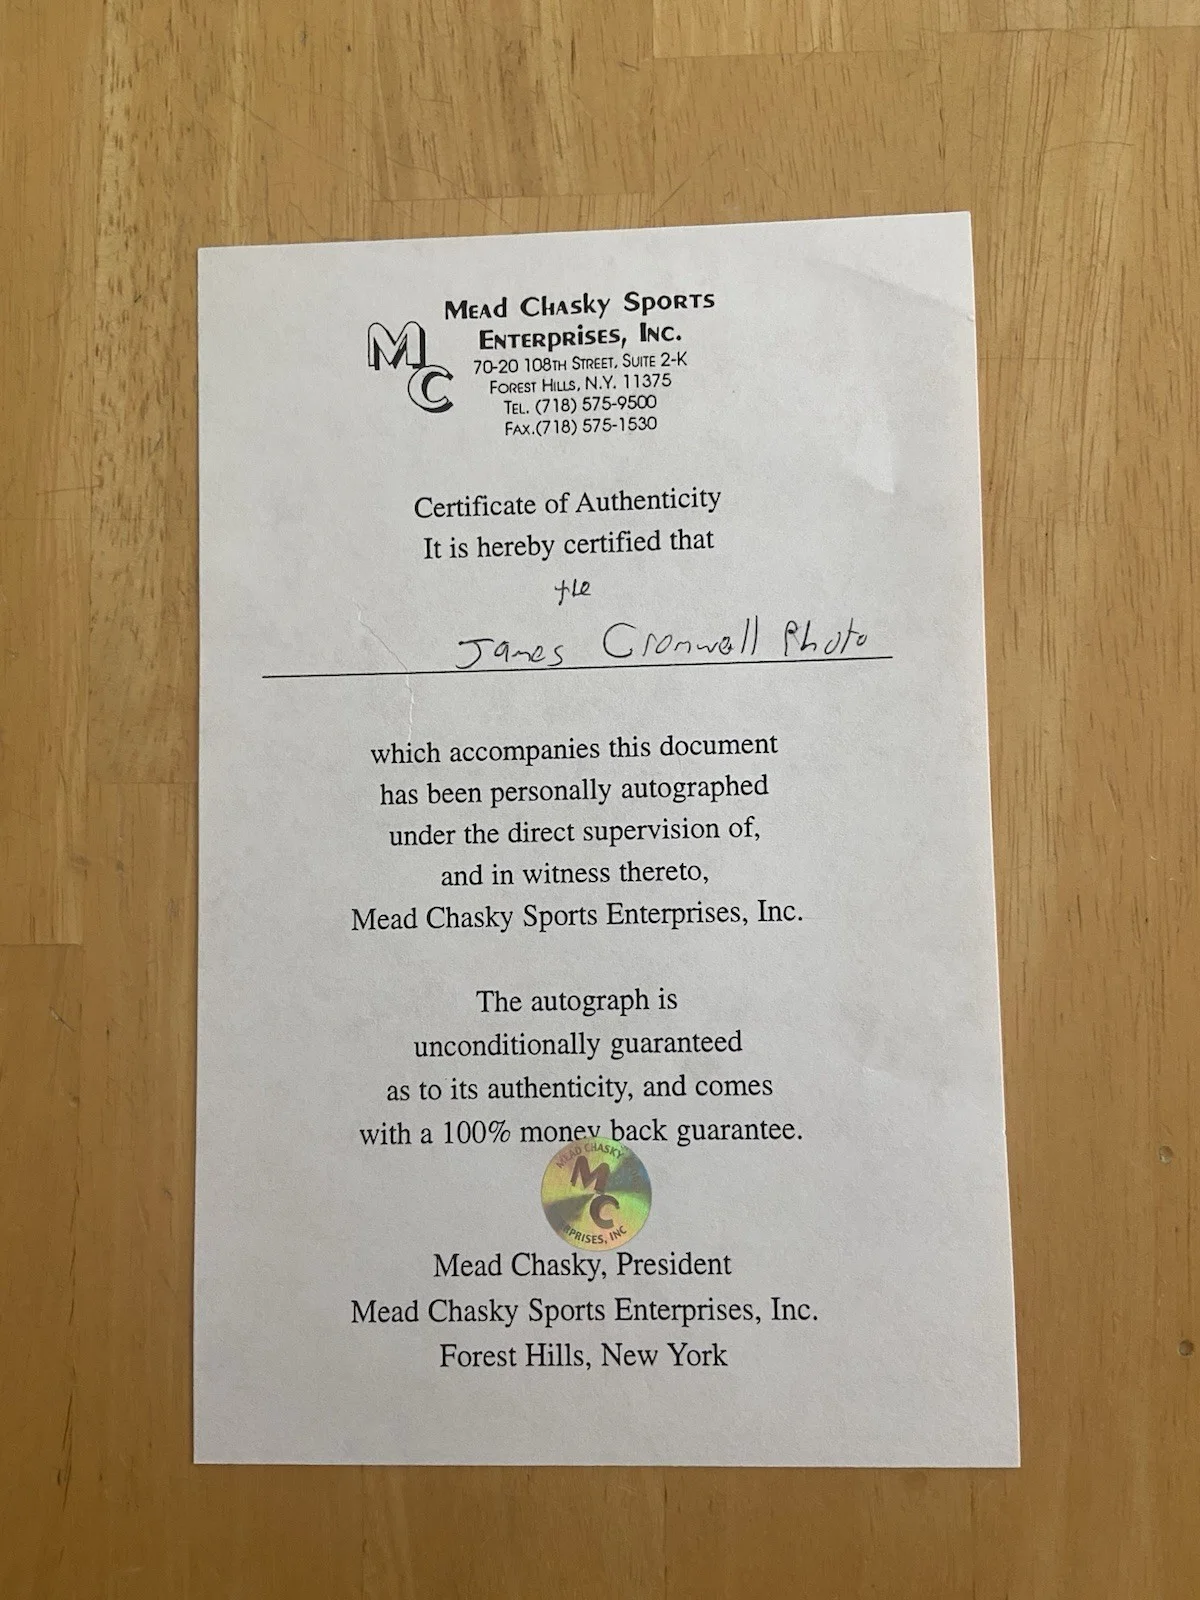 MEAD CHASKY SPORTS
ENTERPRISES, INC.
MC
70-20 108TH STREET, SUITE 2-K
FOREST HILLS, N.Y. 11375
TEL. (718) 575-9500
FAX.(718) 575-1530
Certificate of Authenticity
It is hereby certified that
the
James Cromwell Photo
which accompanies this document
has been personally autographed
under the direct supervision of,
and in witness thereto,
Mead Chasky Sports Enterprises, Inc.
The autograph is
unconditionally guaranteed
as to its authenticity, and comes
with a 100% money back guarantee.
MEAD CHASKY
MC
RPRISES, INC
Mead Chasky, President
Mead Chasky Sports Enterprises, Inc.
Forest Hills, New York